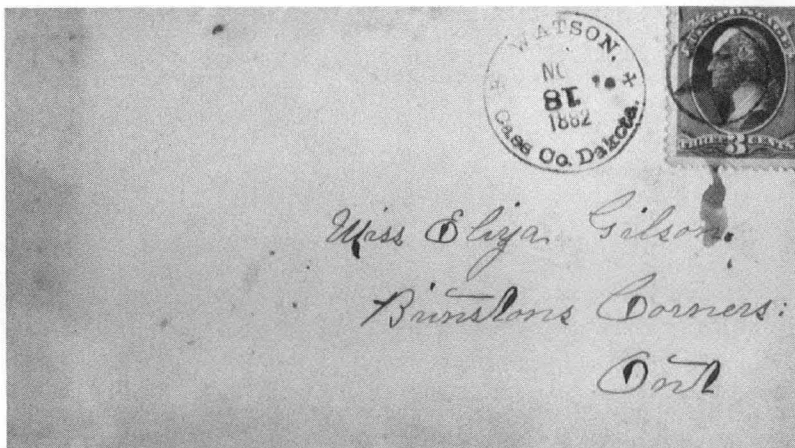 WATSON.
NO
81
1882
Cass Co. Dakota.
THREE 3 CENTS
Miss Eliza Gilson.
Brinstons Corners:
Ont